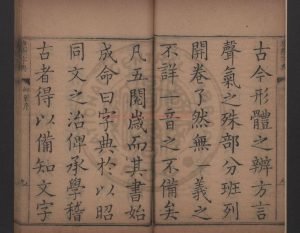 古今形體之辨方言
聲氣之殊部分班列
開卷了然無一義之
不詳一音之不備矣
凡五閱歲而其書始
成命曰字典於以昭
同文之治俾承學稽
古者得以備知文字